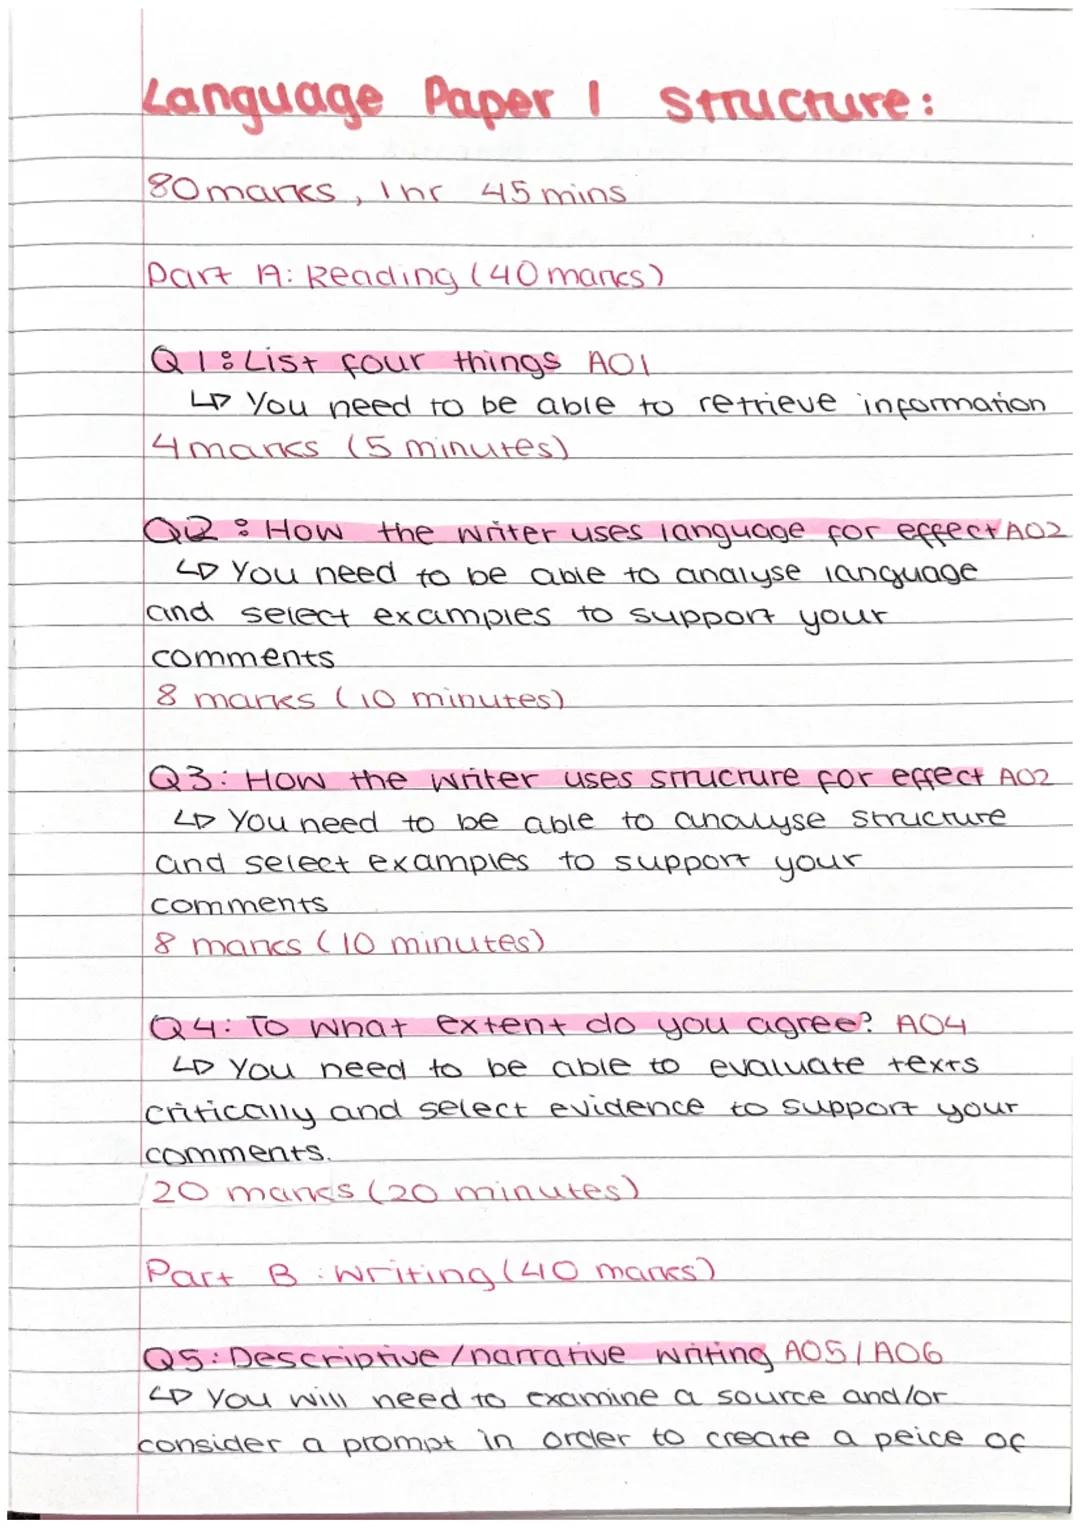 Language Paper 1 Structure:
80 marks, 1 hr 45 mins
Part A: Reading (40 marks)
Q1: List four things AO1
↳ You need to be able to retrieve information
4 marks (5 minutes)
Q2: How the writer uses language for effect AO2
↳ You need to be able to analyse language
and select examples to support your
comments
8 marks (10 minutes)
Q3: How the writer uses structure for effect AO2
↳ You need to be able to analyse structure
and select examples to support your
comments
8 marks (10 minutes)
Q4: To what extent do you agree? AO4
↳ You need to be able to evaluate texts
critically and select evidence to support your
comments.
20 marks (20 minutes)
Part B: Writing (40 marks)
Q5: Descriptive/narrative writing AO5/AO6
↳ You will need to examine a source and/or
consider a prompt in order to create a peice of